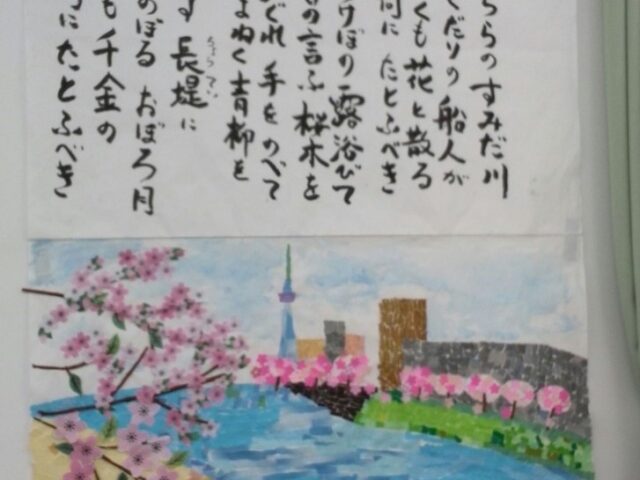 ららのすみだ川
くだりの船人が
くも花と散る
何にたとふべき
けぼの露浴びて
の言ふ桜木を
ぐれ手をのべて
まねく青柳を
す長堤に
ちょうてい
のぼるおぼろ月
も千金の
何にたとふべき